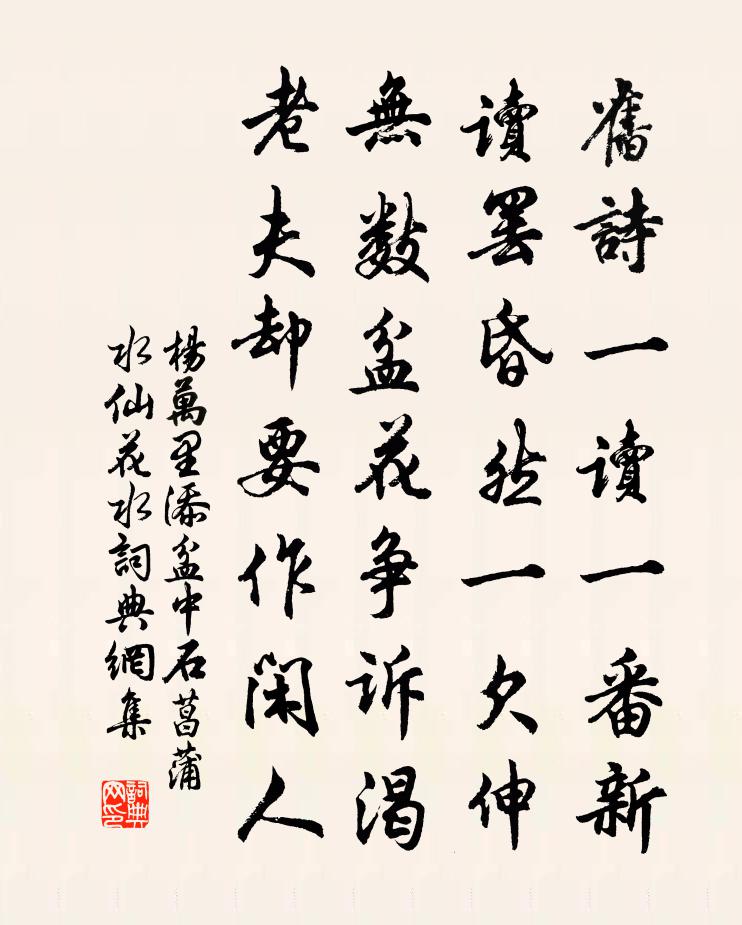 舊詩一讀一番新
讀罷昏然一欠伸
無數盆花争訴渴
老夫却要作閑人
楊萬里添盆中石菖蒲
水仙花水詞典網集
詞典
网印